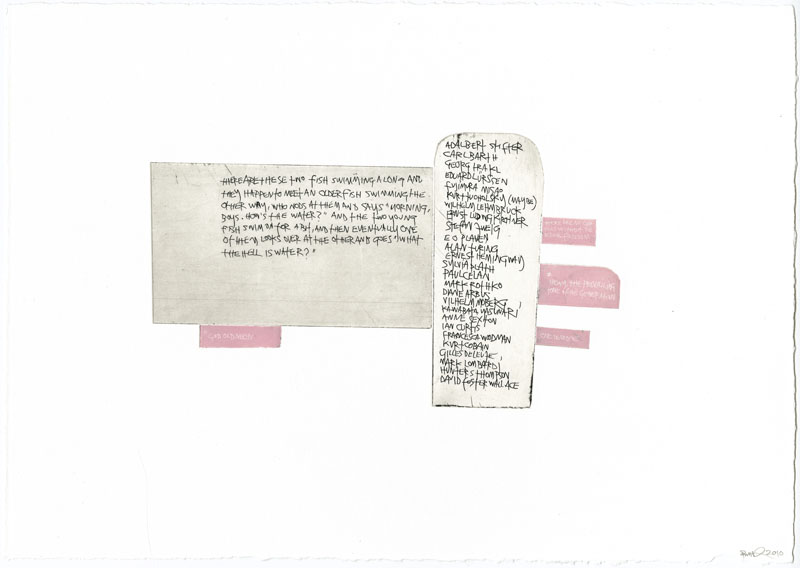 THERE ARE THESE TWO FISH SWIMMING ALONG AND
THEY HAPPEN TO MEET AN OLDER FISH SWIMMING THE
OTHER WAY, WHO NODS AT THEM AND SAYS "MORNING,
BOYS. HOW'S THE WATER?" AND THE TWO YOUNG
FISH SWIM ON FOR A BIT, AND THEN EVENTUALLY ONE
OF THEM LOOKS OVER AT THE OTHER AND GOES "WHAT
THE HELL IS WATER?"
ADALBERT STIFTER
CARL BARTH
GEORG TRAKL
EDUARD LURSSEN
FUJIMURA MISAO
KURT TUCHOLSKY (MAYBE)
WILHELM LEHMBRUCK
ERNST LUDWIG KIRCHNER
STEFAN ZWEIG
E O PLAUEN
ALAN TURING
ERNEST HEMINGWAY
SYLVIA PLATH
PAUL CELAN
MARK ROTHKO
DIANE ARBUS
VILHELM MOBERG
KAWABATA YASUNARI
ANNE SEXTON
IAN CURTIS
FRANCESCA WOODMAN
KURT COBAIN
GILLES DELEUZE
MARK LOMBARDI
HUNTER S THOMPSON
DAVID FOSTER WALLACE
2010